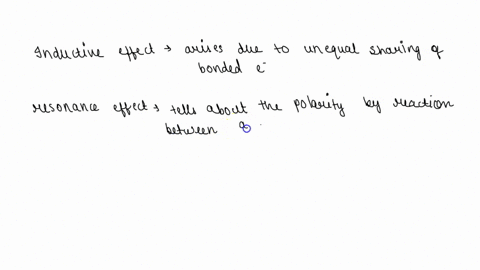 Inductive effect → arises due to unequal sharing of
bonded e⁻
resonance effect → tells about the polarity by reaction
between